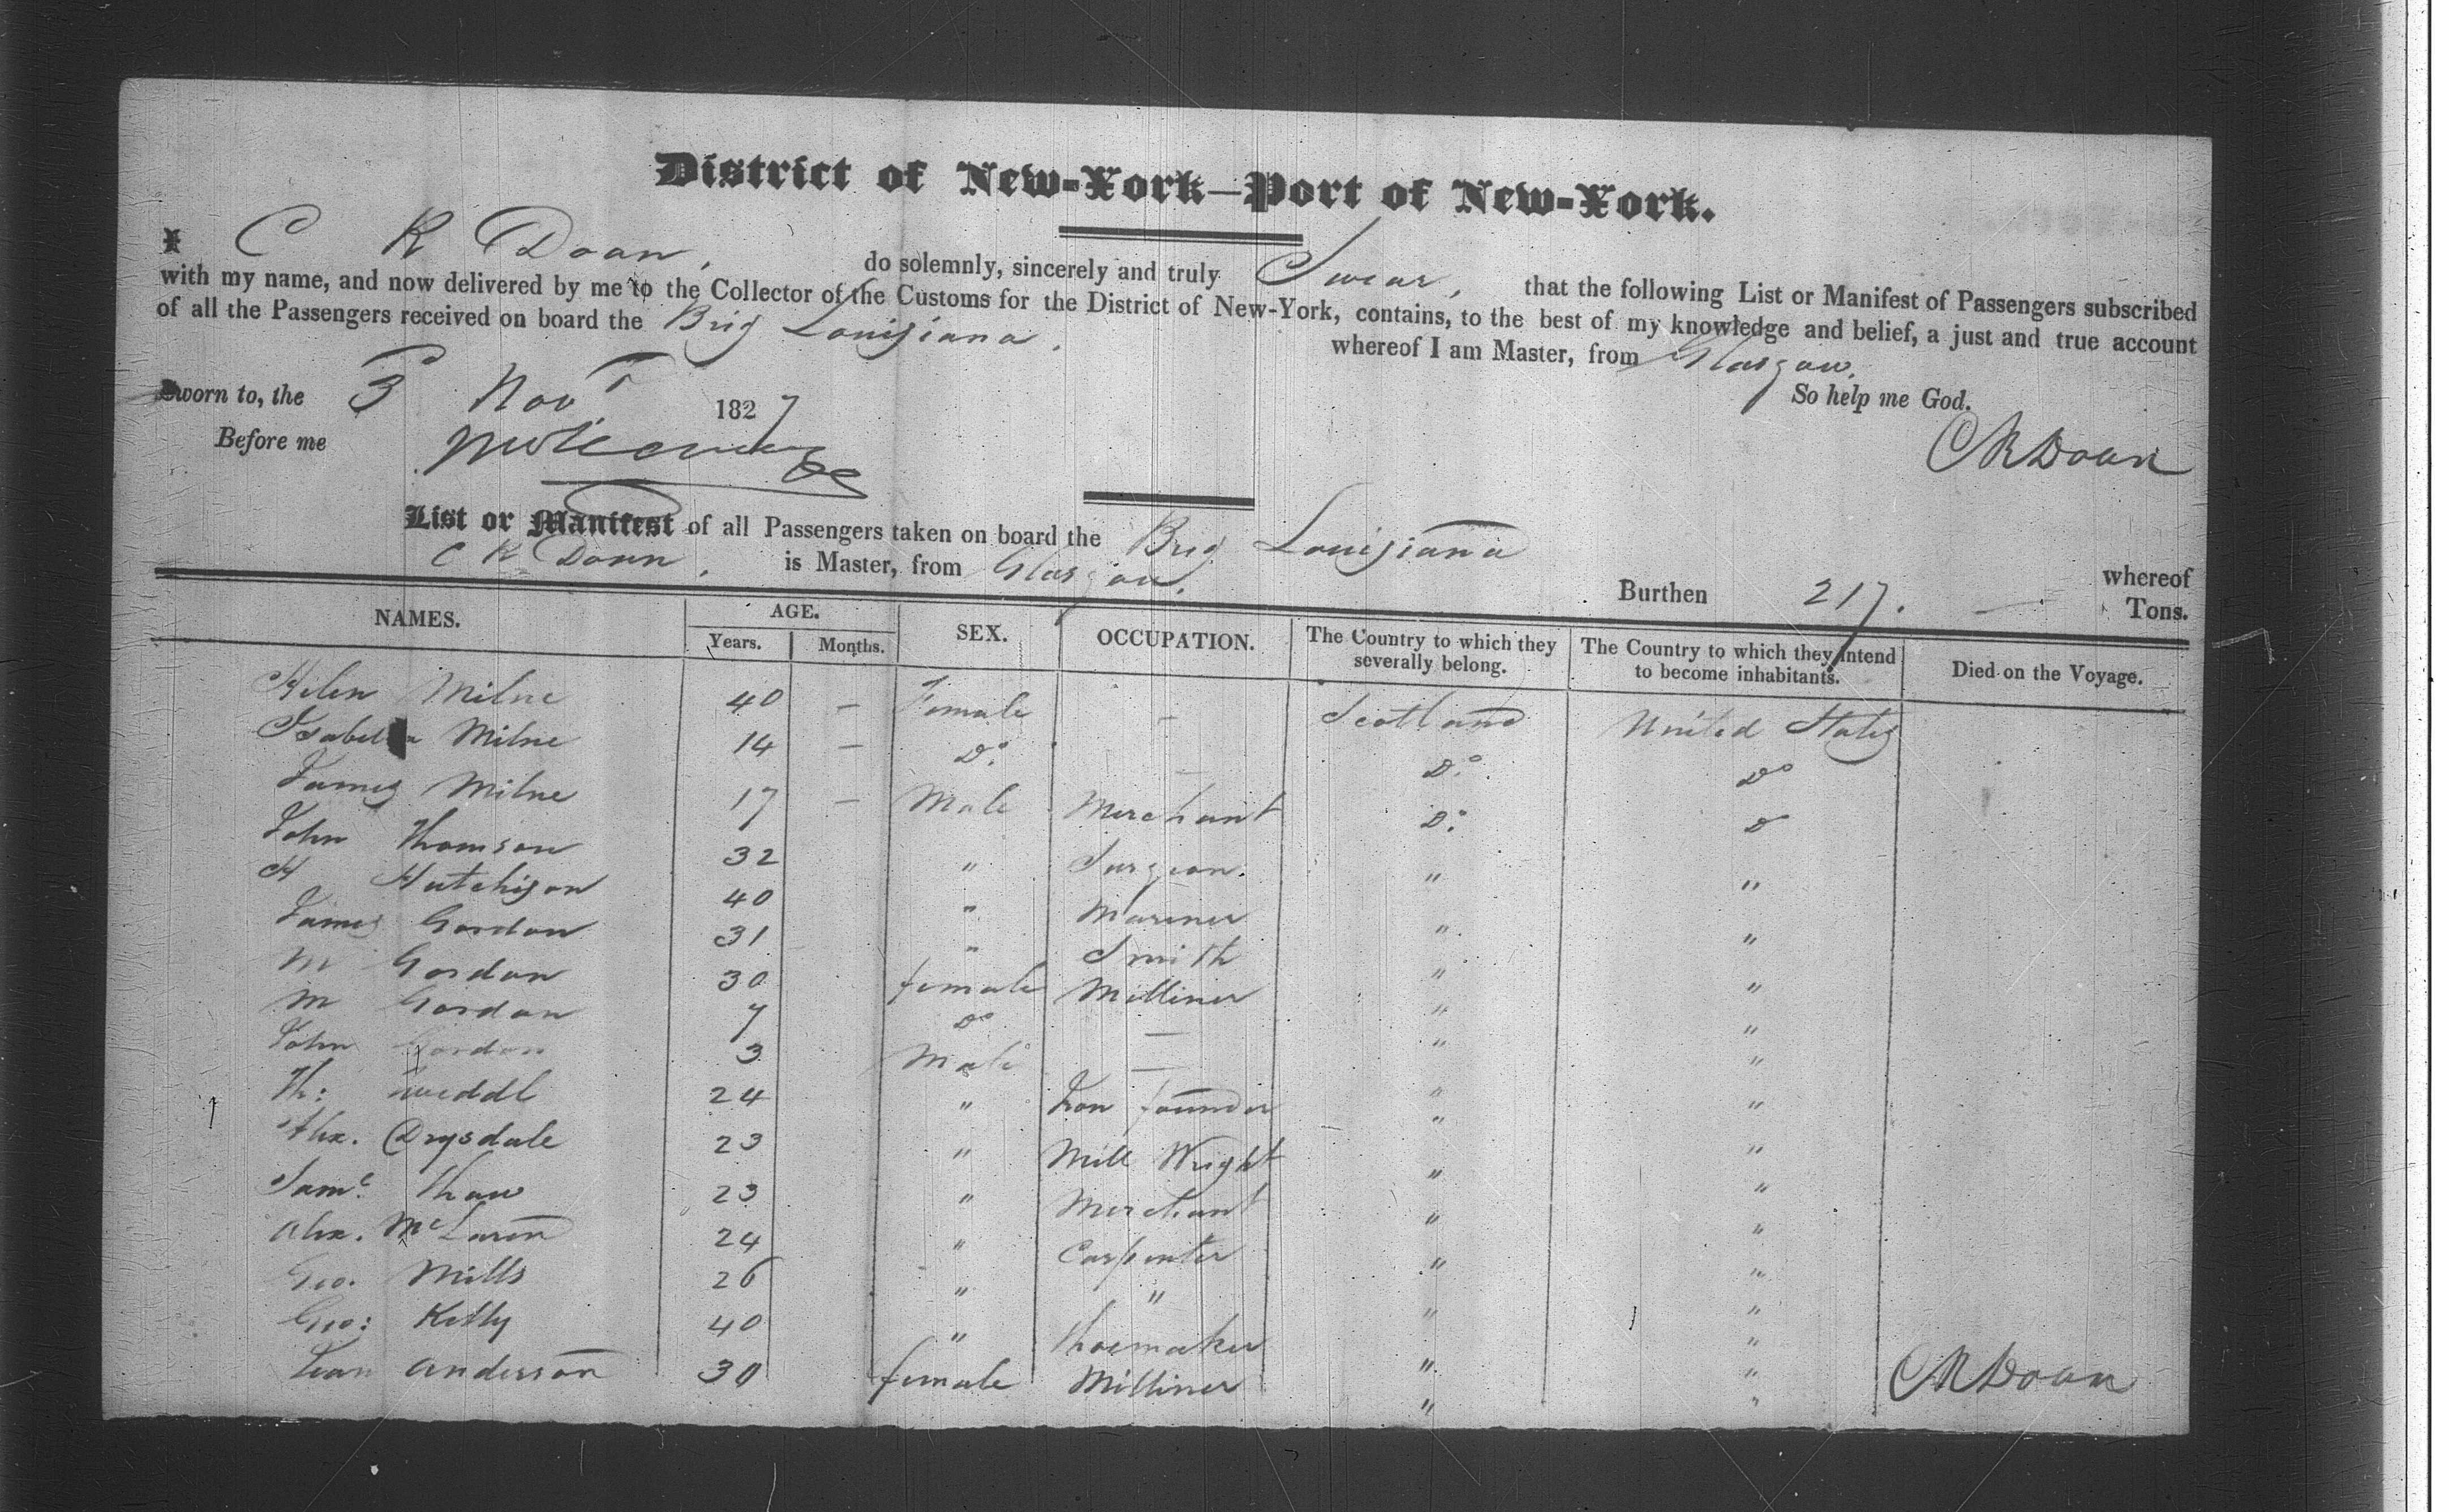 District of New-York—Port of New-York.
I C R Doan, do solemnly, sincerely and truly Swear, that the following List or Manifest of Passengers subscribed
with my name, and now delivered by me to the Collector of the Customs for the District of New-York, contains, to the best of my knowledge and belief, a just and true account
of all the Passengers received on board the Brig Louisiana, whereof I am Master, from Glasgow.
So help me God.
Sworn to, the 3 Novr 1827
Before me
CR Doan
List or Manifest of all Passengers taken on board the Brig Louisiana whereof
C R Doan, is Master, from Glasgow. Burthen 217. Tons.
NAMES. AGE. SEX. OCCUPATION. The Country to which they severally belong. The Country to which they intend to become inhabitants. Died on the Voyage.
Years. Months.
Helen Milne 40 — Female — Scotland United States
Isabella Milne 14 — Do. — Do. Do
James Milne 17 — Male Merchant Do. Do
John Thomson 32 " Surgeon. " "
H Hutchison 40 " Mariner " "
James Gordon 31 " Smith " "
M Gordon 30 female Milliner " "
M Gordon 7 Do — " "
John Gordon 3 Male — " "
Th: Tweddl 24 " Iron founder " "
Alex. Drysdale 23 " Mill Wright " "
Saml. Shaw 23 " Merchant " "
Alex. McLaren 24 " Carpenter " "
Geo. Mills 26 " " " "
Geo: Kelly 40 " Shoemaker " "
Jean Anderson 30 female Milliner " "
CR Doan